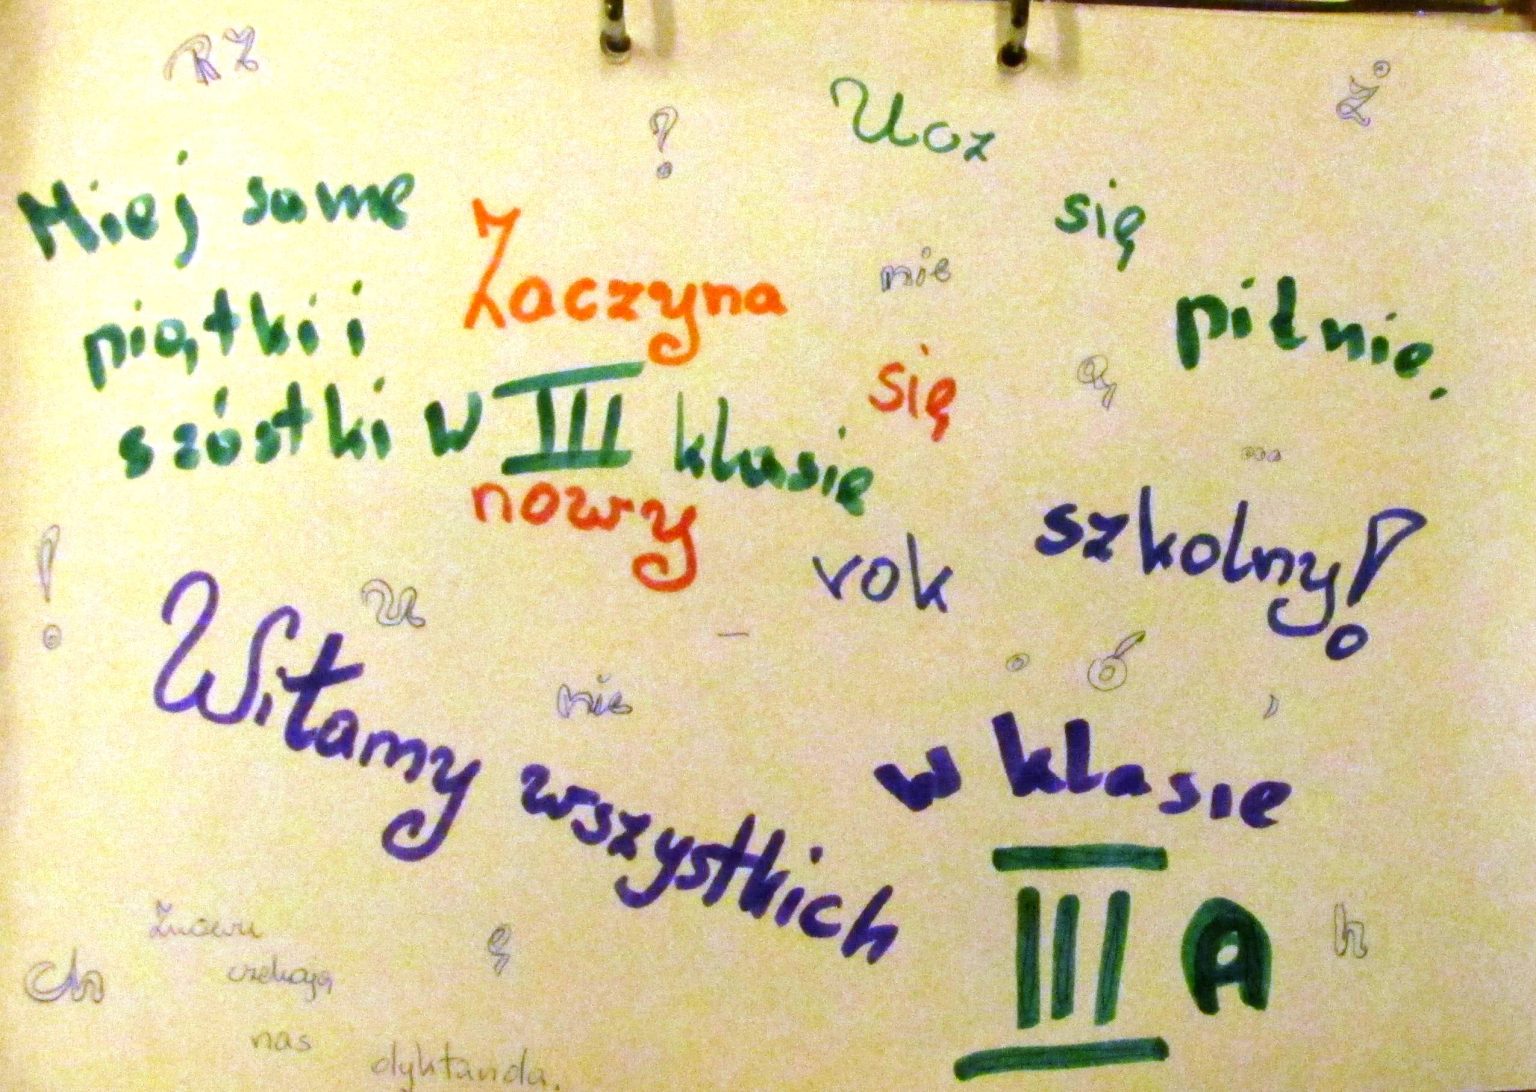 RZ
?
Ucz
Ż
się
pilnie.
Miej same
piątki i
szóstki w III klasie
Zaczyna
nie
się
ą
nowy
rok
szkolny!
!
u
–
nie
ó
,
Witamy wszystkich
w klasie
III A
Znowu
czekają
nas
dyktanda.
ch
ę
h